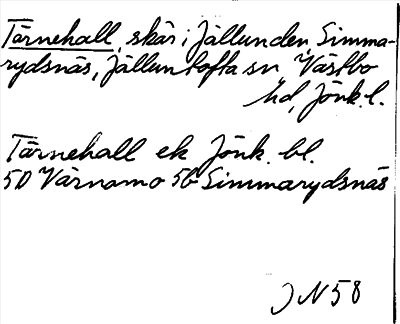 Tärnehall, skär i Jällunden, Simma-
rydsnäs, Jälluntofta sn Västbo
hd, Jönk. l.
Tärnehall ek Jönk. bl.
5D Värnamo 5b Simmarydsnäs
JN 58